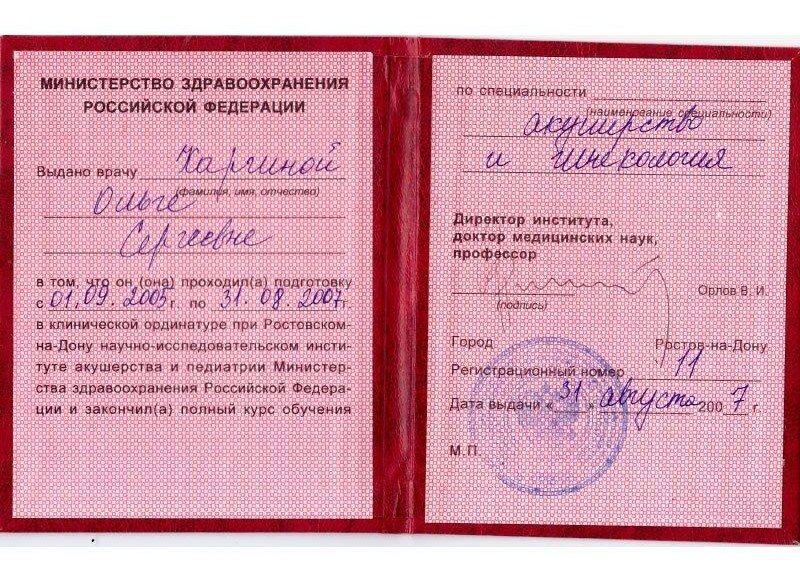 МИНИСТЕРСТВО ЗДРАВООХРАНЕНИЯ
РОССИЙСКОЙ ФЕДЕРАЦИИ
Выдано врачу Каргиной
(фамилия, имя, отчество)
Ольге
Сергеевне
в том, что он (она) проходил(а) подготовку
с 01.09.2005 г. по 31.08.2007 г.
в клинической ординатуре при Ростовском-
на-Дону научно-исследовательском инсти-
туте акушерства и педиатрии Министер-
ства здравоохранения Российской Федера-
ции и закончил(а) полный курс обучения
по специальности
(наименование специальности)
акушерство
и гинекология
Директор института,
доктор медицинских наук,
профессор
Орлов В. И.
(подпись)
Город Ростов-на-Дону
Регистрационный номер 11
Дата выдачи «31» августа 2007 г.
М.П.